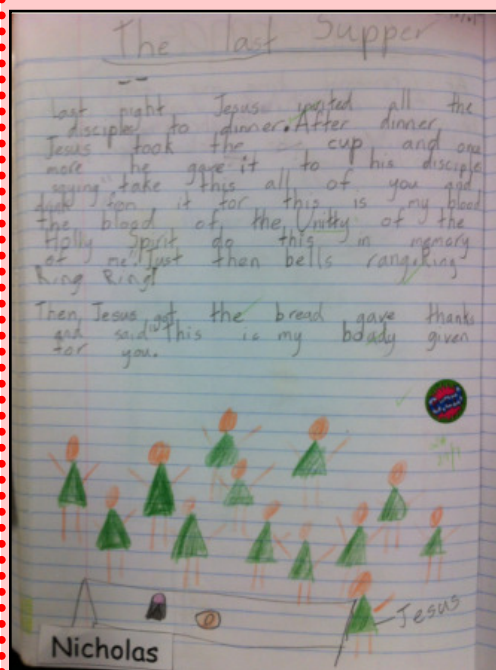 The last Supper
Last night Jesus invited all the
disciples to dinner. After dinner
Jesus took the cup and one
more he gave it to his disciple
saying "take this all of you and
from it for this is my blood
the blood of the Unitty of the
Holly Spirit do this in memory
of me. Just then bells rang. Ring
Ring Ring!
Then Jesus got the bread gave thanks
and said "this is my boady given
for you.
Jesus
Nicholas